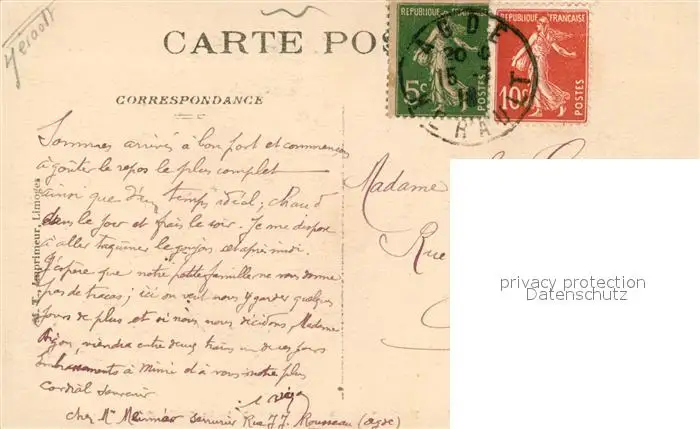 Herault
CARTE POS
CORRESPONDANCE
REPUBLIQUE FRANÇAISE
5c
POSTES
REPUBLIQUE FRANÇAISE
10c
POSTES
AGDE
20
15
HERAULT
Imprimeur, Limoges
Sommes arrivés à bon port et commençons
à goûter le repos le plus complet
ainsi que d'un temps idéal ; chaud
dans le jour et frais le soir. Je me dispose
à aller taquiner le goujon cet après midi.
J'espère que notre petite famille ne vous donne
pas de tracas ; ici on veut nous y garder quelques
jours de plus et si nous nous décidons, Madame
viendra entre deux trains un de ces jours
Embrassements à Mimi et à vous notre plus
Cordial souvenir
chez Mr Meunier serrurier Rue J.J. Rousseau (Agde)
Madame
Rue
privacy protection
Datenschutz